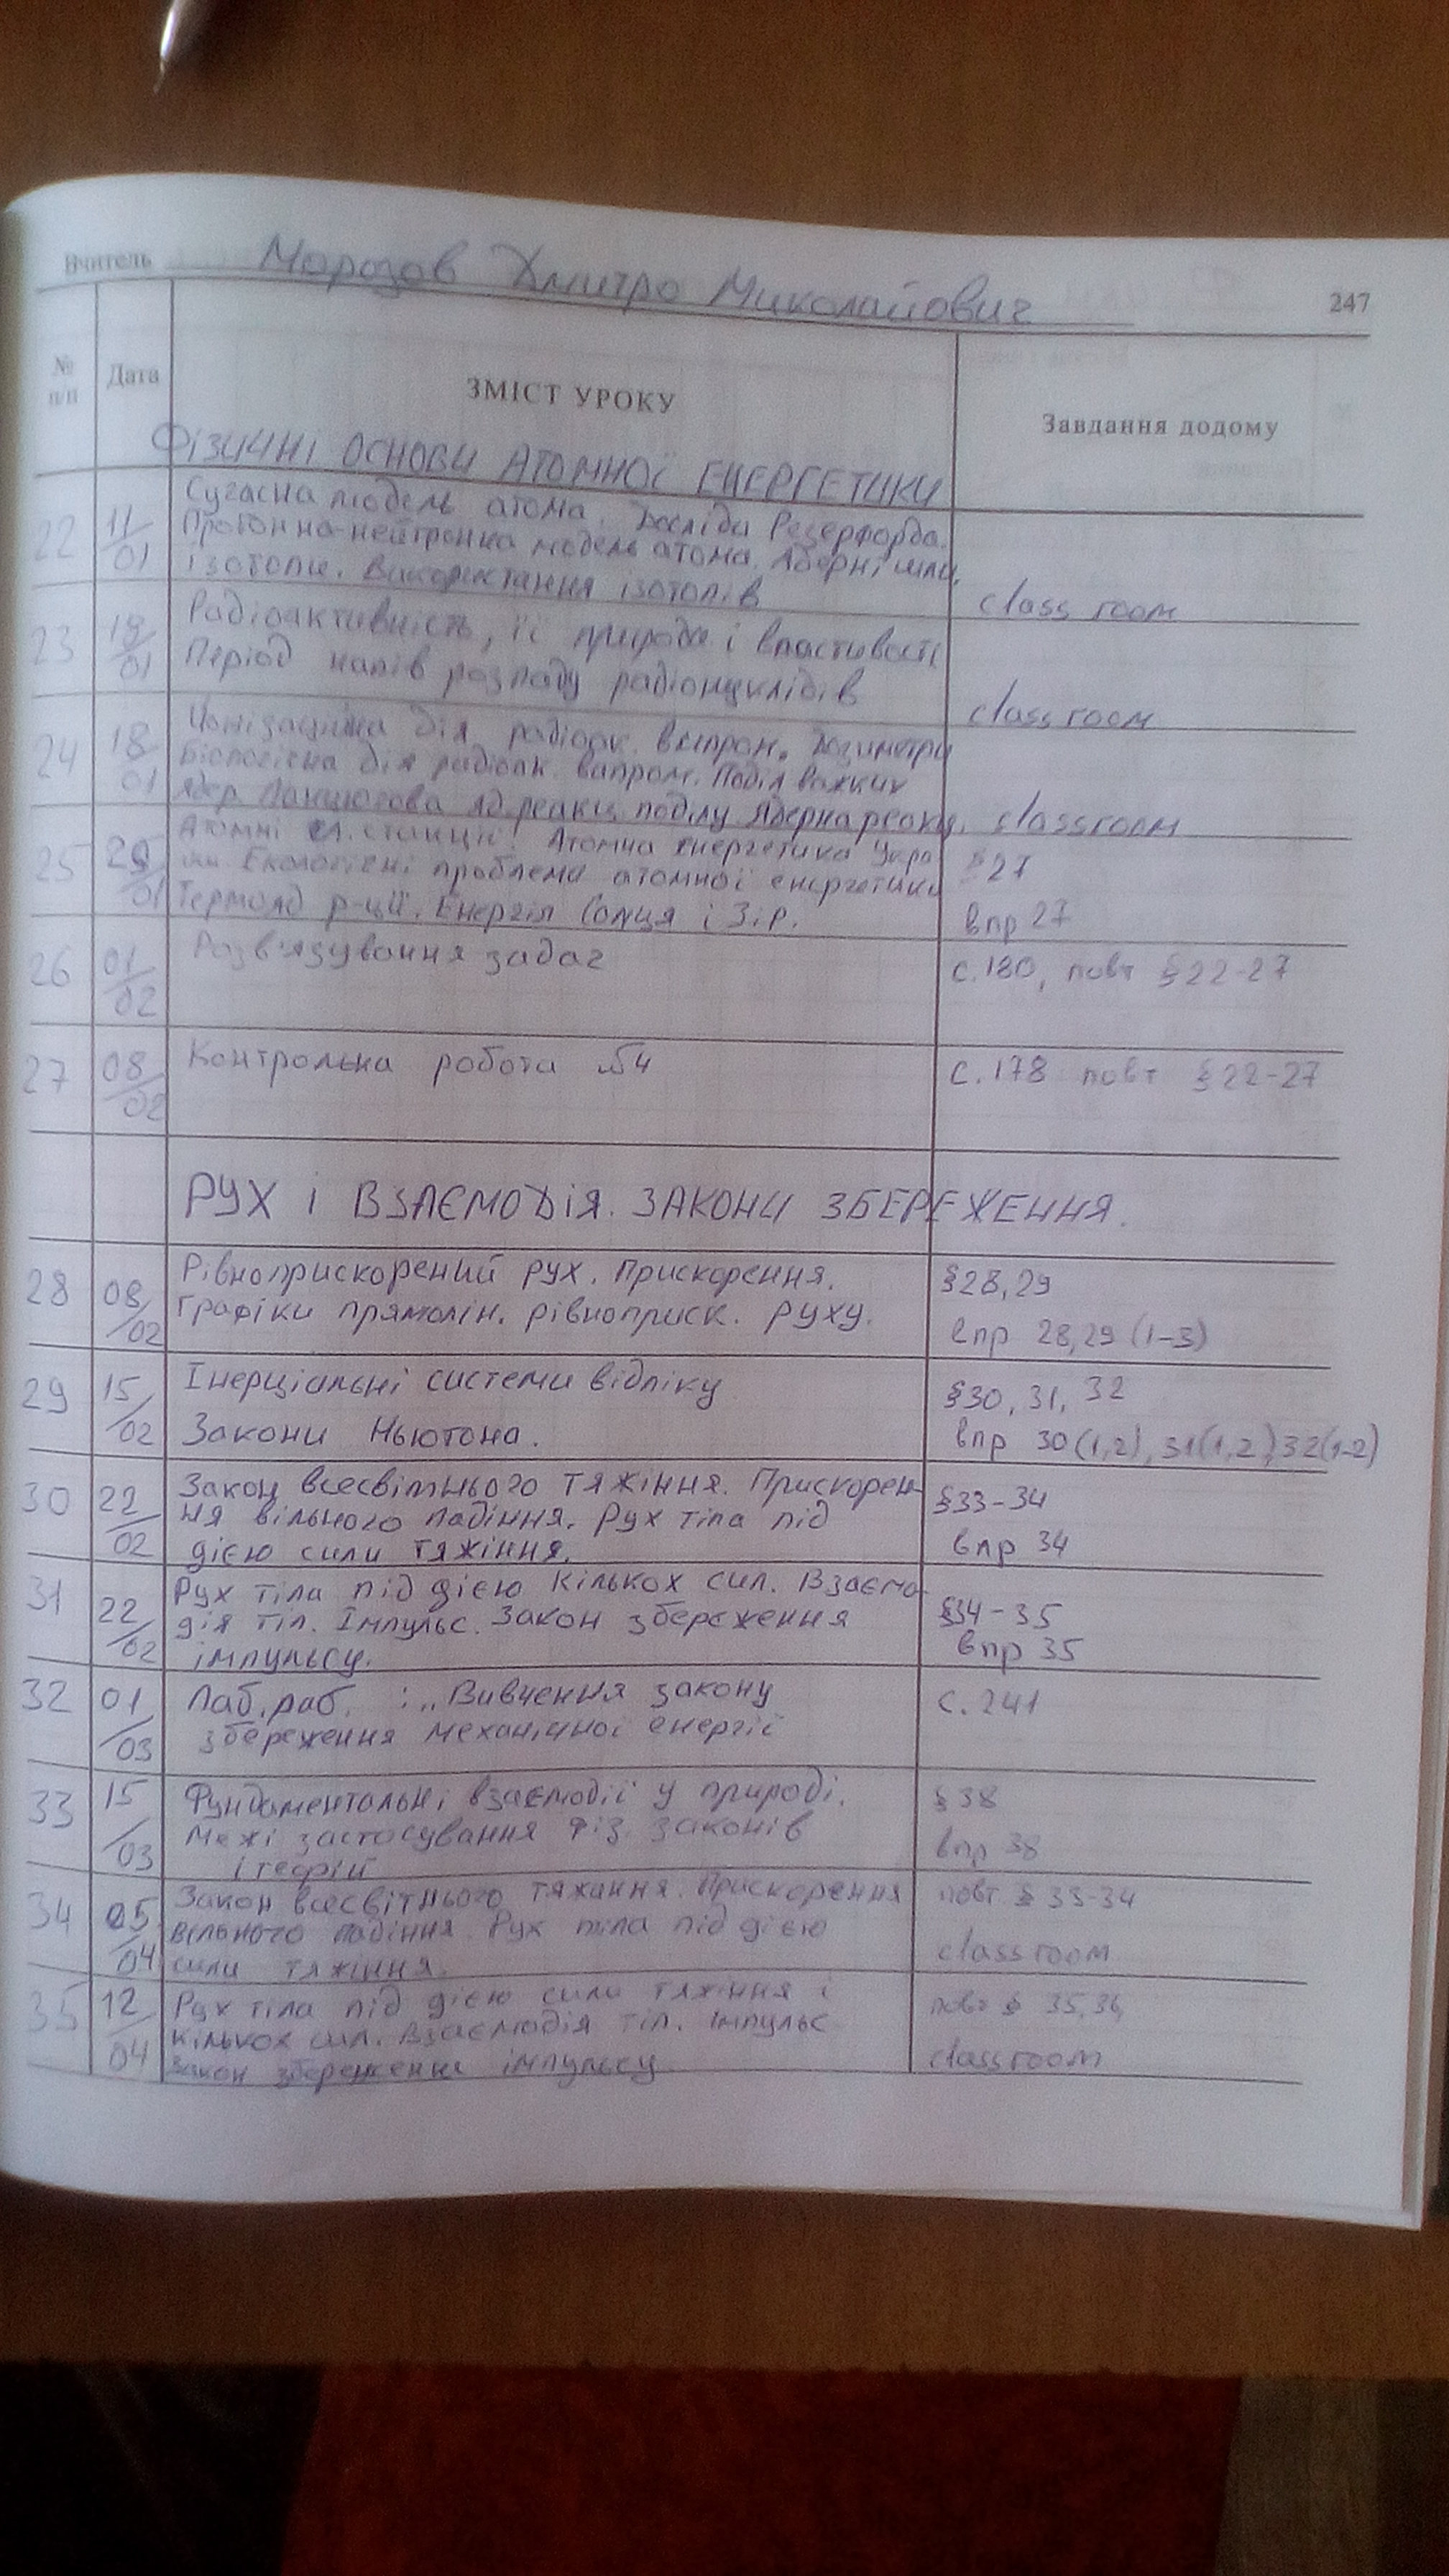 Вчитель Морозов Дмитро Миколайович
247
№ п/п
Дата
ЗМІСТ УРОКУ
Завдання додому
ФІЗИЧНІ ОСНОВИ АТОМНОЇ ЕНЕРГЕТИКИ
22 11/01 Сучасна модель атома. Досліди Резерфорда.
Протонно-нейтронна модель атома. Ядерні сили.
ізотопи. Використання ізотопів class room
23 18/01 Радіоактивність, її природа і властивості
Період напів розпаду радіонуклідів class room
24 18/01 Йонізаційна дія радіоак. випром. Дозиметри
Біологічна дія радіоак. випром. Поділ важких
ядер Ланцюгова яд. реакц поділу Ядерна реакц. classroom
25 01 Атомні ел. станції. Атомна енергетика Укра
їни Екологічні проблеми атомної енергетики §27
Термояд р-ції. Енергія Сонця і Зір. впр 27
26 01/02 Розв'язування задач с.180, повт §22-27
27 08/02 Контрольна робота №4 с.178 повт §22-27
РУХ І ВЗАЄМОДІЯ. ЗАКОНИ ЗБЕРЕЖЕННЯ.
28 08/02 Рівноприскорений рух. Прискорення. §28,29
Графіки прямолін. рівноприск. руху. впр 28,29 (1-3)
29 15/02 Інерціальні системи відліку §30, 31, 32
Закони Ньютона. впр 30(1,2), 31(1,2), 32(1-2)
30 22/02 Закон всесвітнього тяжіння. Прискорен-
ня вільного падіння. Рух тіла під §33-34
дією сили тяжіння. впр 34
31 22/02 Рух тіла під дією кількох сил. Взаємо-
дія тіл. Імпульс. Закон збереження §34-35
імпульсу. впр 35
32 01/03 Лаб. раб. : „Вивчення закону с. 241
збереження механічної енергії
33 15/03 Фундаментальні взаємодії у природі. §38
Межі застосування фіз. законів впр 38
і теорій
34 05/04 Закон всесвітнього тяжіння. Прискорення повт § 33-34
вільного падіння. Рух тіла під дією
сили тяжіння. classroom
35 12/04 Рух тіла під дією сили тяжіння і повт § 35,36,
кількох сил. Взаємодія тіл. Імпульс
Закон збереження імпульсу classroom